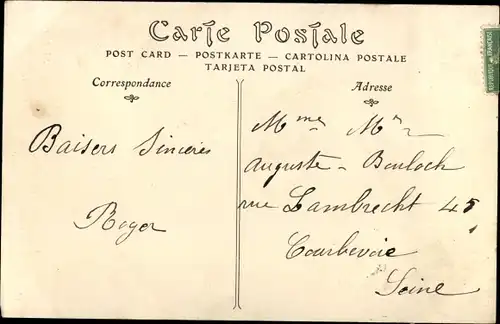 Carte Postale
POST CARD — POSTKARTE — CARTOLINA POSTALE
TARJETA POSTAL
Correspondance
Adresse
Baisers Sincères
Roger
Mme Mr
Auguste - Bouloch
rue Lambrecht 45
Courbevoie
Seine